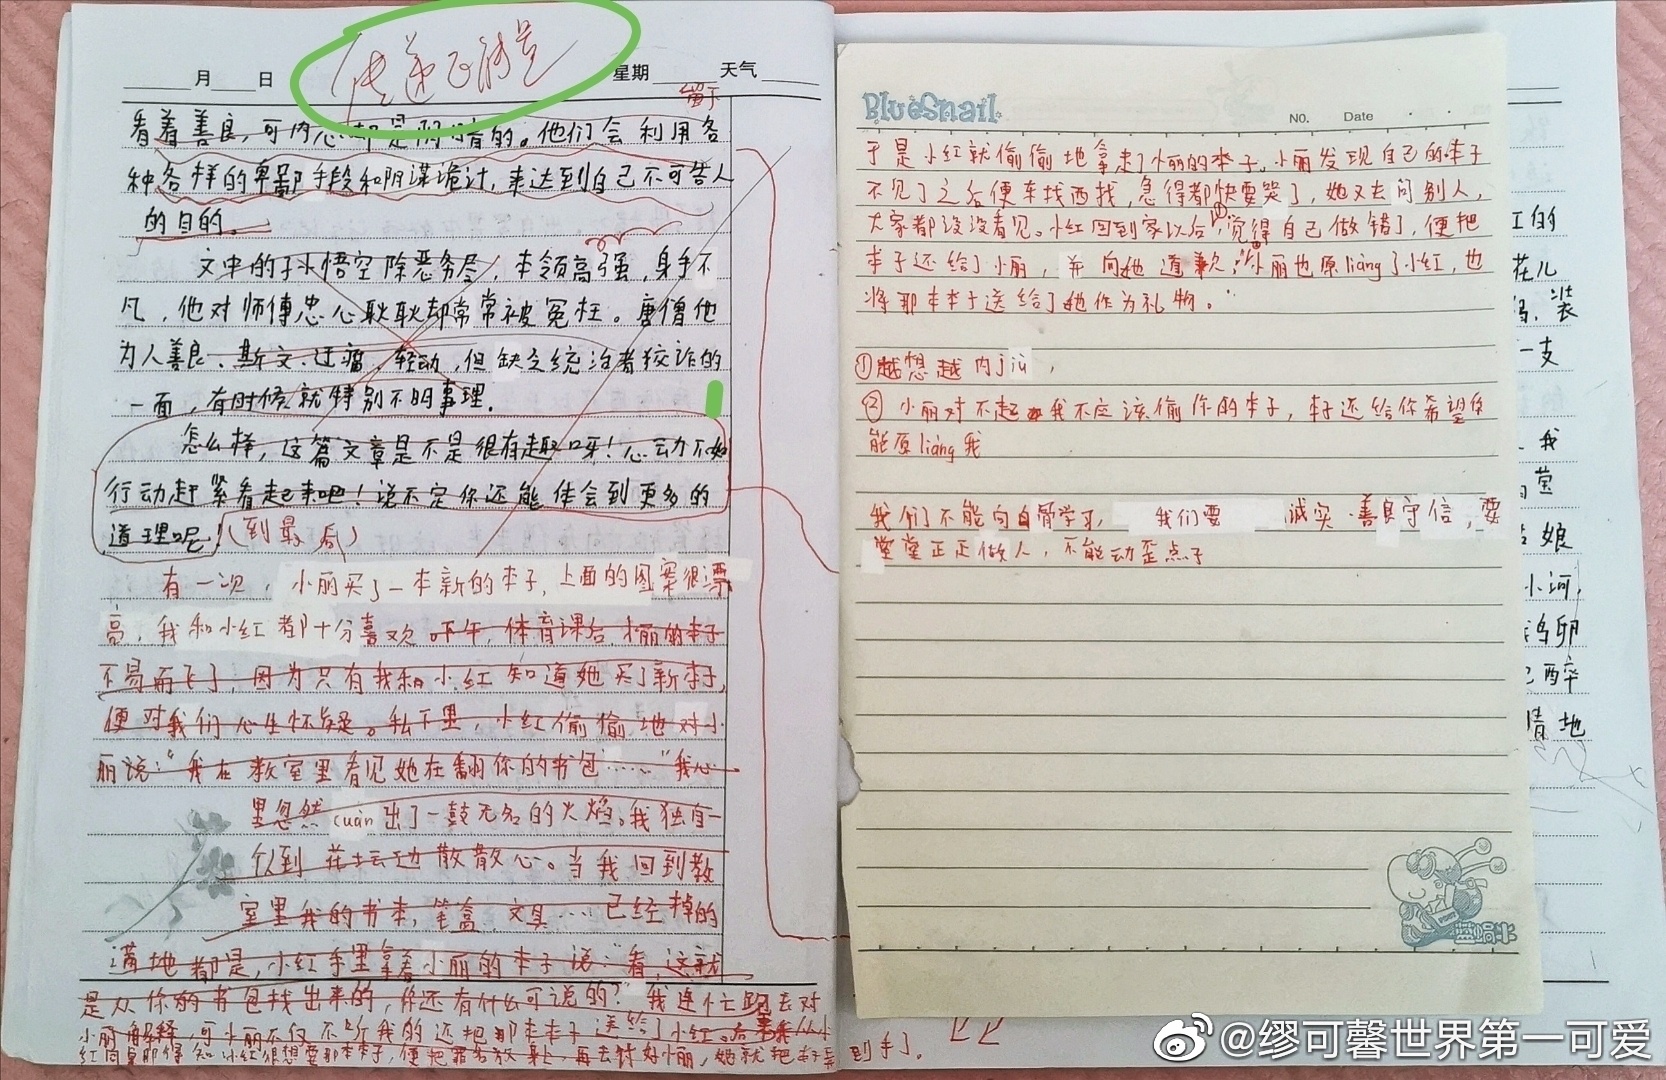 传递正能量
月 日
星期 天气
留下
看着善良，可内心却是阴暗的。他们会利用各
种各样的卑鄙手段和阴谋诡计，来达到自己不可告人
的目的。
文中的孙悟空除恶务尽，本领高强，身手不
凡，他对师傅忠心耿耿却常常被冤枉。唐僧他
为人善良、斯文、迂腐、轻动，但缺乏统治者狡诈的
一面，有时候就特别不明事理.
怎么样，这篇文章是不是很有趣呀！心动不如
行动赶紧看起来吧！说不定你还能体会到更多的
道理呢！(到最后)
有一次，小丽买了一本新的本子，上面的图案很漂
亮，我和小红都十分喜欢.下午，体育课后，小丽的本子
不易而飞了，因为只有我和小红知道她买了新本子，
便对我们心生怀疑。私下里，小红偷偷地对小
丽说：“我在教室里看见她在翻你的书包……”我心
里忽然cuān出了一鼓无名的火焰。我独自一
人到花坛边散散心。当我回到教
室里我的书本，笔盒，文具……已经掉的
满地都是，小红手里拿着小丽的本子说：“看，这就
是从你的书包找出来的，你还有什么可说的？”我连忙跑去对
小丽解释，可小丽不仅不听我的还把那本本子送给了小红。后来从小
红同桌那得知小红很想要那本本子，便把
再去讨好小丽，她就把本子弄到手了.
BlueSnail
NO. Date
于是小红就偷偷地拿走了小丽的本子。小丽发现自己的本子
不见了之后便东找西找，急得都快要哭了，她又去问别人，
大家都说没看见。小红回到家以后①，觉得自己做错了，便把
本子还给了小丽，并向她道歉：“②”小丽也原liàng了小红，也
将那本本子送给了她作为礼物。
①越想越内jiù，
②小丽对不起我不应该偷你的本子，本子还给你希望你
能原liàng我
我们不能向白骨学习，我们要诚实善良守信，要
堂堂正正做人，不能动歪点子
蓝蜗牛
红的
花儿
妈，装
一支
我
萤
姑娘
小河，
鸟卵
醉
情地
@缪可馨世界第一可爱